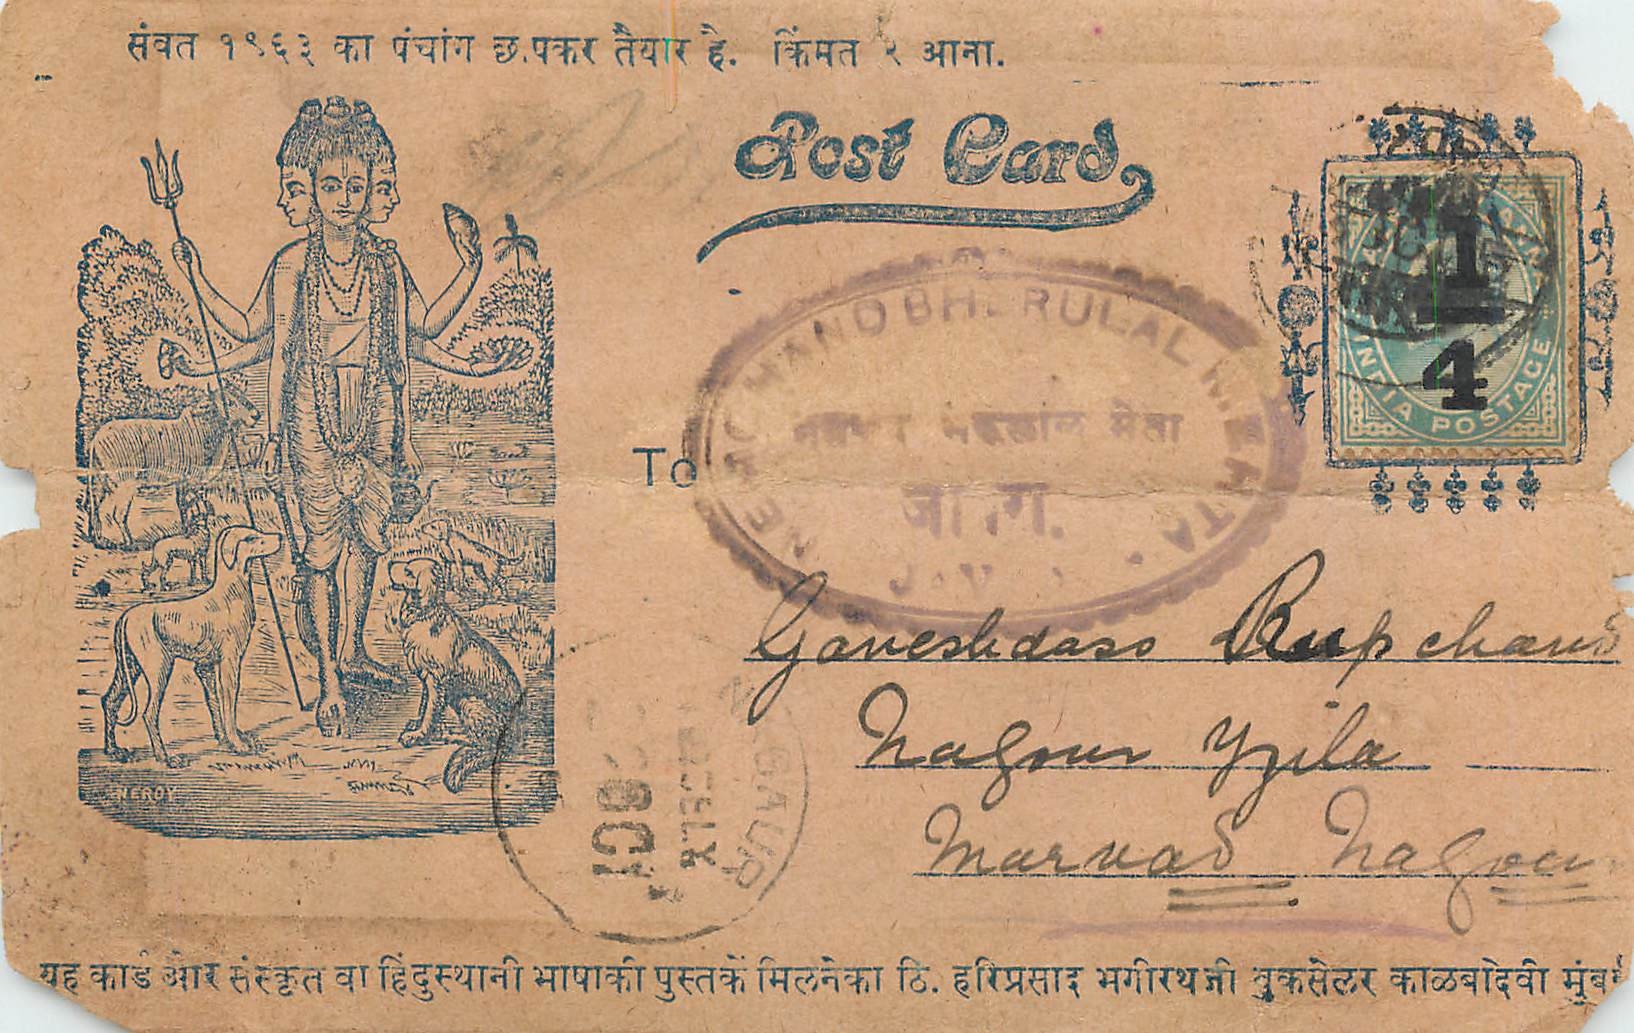 संवत १९६३ का पंचांग छ.पकर तैयार है. किंमत २ आना.
Post Card
1
4
INDIA POSTAGE
BH RULAL MEHTA
मेता
To
Ganeshdass Rupchand
Nagour Yzila
Marvad Nagour
NAGAUR
OCT
NEROY
यह कार्ड और संस्कृत वा हिंदुस्थानी भाषाकी पुस्तकें मिलनेका ठि. हरिप्रसाद भगीरथजी बुकसेलर काळबादेवी मुंबई